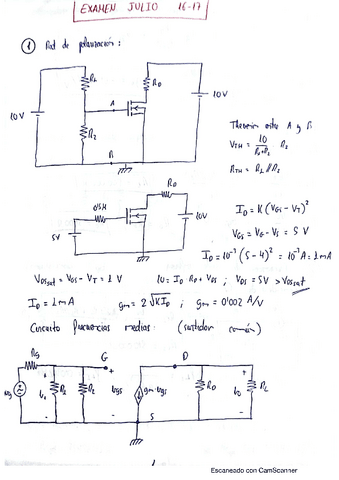 EXAMEN JULIO 16-17
① Red de polarización:
R1
RD
10V
A
10V
R2
B
Thevenin entre A y B
VTH = 10/(R1+R2) R2
RTH = R1 // R2
RD
0'5M
10V
5V
ID = K(VGS - VT)²
VGS = VG - VS = 5V
ID = 10⁻³(5-4)² = 10⁻³A = 1mA
VDSsat = VGS - VT = 1V
10 = ID RD + VDS ; VDS = 5V > VDSsat
ID = 1mA
gm = 2√KID ; gm = 0'002 A/V
Circuito frecuencias medias: (surtidor común)
Rg
G
D
vg
R1
R2
vgs
gm·vgs
RD
RL
S
1
Escaneado con CamScanner